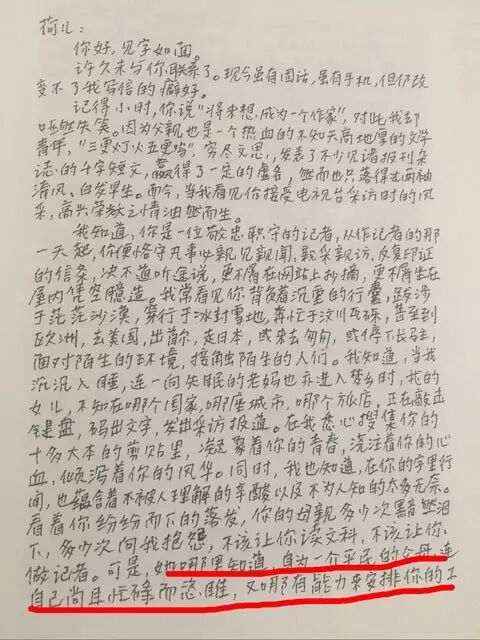 荷儿：
你好，见字如面。
许久未与你联系了。现今虽有固话，虽有手机，但仍改
变不了我写信的癖好。
记得小时，你说“将来想成为一个作家”，对此我却
哑然失笑。因为父亲也是一个热血的不知天高地厚的文学
青年，“三更灯火五更鸡”，穷尽文思，发表了不少见诸报刊杂
志的千字短文，赢得了一定的虚名，然而也只落得过两袖
清风、白发早生。而今，当我看见你接受电视台采访时的风
采，高兴荣妖之情油然而生。
我知道，你是一位敬忠职守的记者，从作记者的那
一天起，你便恪守凡事必亲见亲闻，亲采亲访、反复印证
的信条，决不道听途说，更不屑在网站上抄摘，更不屑坐在
屋内凭空臆造。我常看见你背负着沉重的行囊，跋涉
于茫茫沙漠，穿行于冰封雪地，奔忙于汶川瓦砾，甚至到
欧洲，去美国，出首尔，走日本，或来去匆匆，或停下长驻，
面对陌生的环境，接触陌生的人们。我知道，当我
沉沉入睡，连一向失眠的老妈也并进入梦乡时，我的
女儿，不知在哪个国家，哪座城市，哪个旅店，正在敲击
键盘，码出文字，发出采访报道。在我悉心搜集你的
十多大本的剪贴里，凝聚着你的青春，浇注着你的心
血，倾泻着你的风华。同时，我也知道，在你的字里行
间，也蕴含着不被人理解的辛酸以及不为人知的太多无奈。
看着你纷纷而下的落发，你的母亲多少次黯然泪
下，多少次向我抱怨，不该让你读文科，不该让你
做记者。可是，她哪里知道，身为一个平民的父母，连
自己尚且忙碌而恣睢，又哪有能力来安排你的工